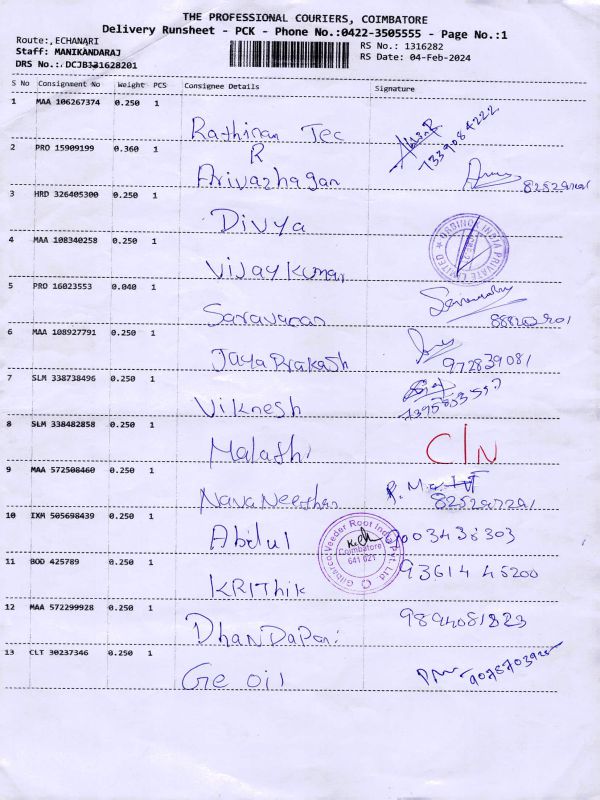 THE PROFESSIONAL COURIERS, COIMBATORE
Delivery Runsheet - PCK - Phone No.:0422-3505555 - Page No.:1
Route:,ECHANARI
RS No.: 1316282
Staff: MANIKANDARAJ
RS Date: 04-Feb-2024
DRS No.:.DCJB131628201
S No Consignment No Weight PCS Consignee Details Signature
1 MAA 106267374 0.250 1
Rathinam Tec
7339084222
2 PRO 15909199 0.360 1
R
Arivazhagan
3 HRD 326405300 0.250 1
Divya
4 MAA 108340258 0.250 1
INDIA PRIVATE LIMITED
Vijay Kumar
5 PRO 16023553 0.040 1
Saravanan
6 MAA 108927791 0.250 1
Jaya Prakash
972839081
7 SLM 338738496 0.250 1
Viknesh
8 SLM 338482858 0.250 1
Malathi
C/N
9 MAA 572508460 0.250 1
NavaNeethan
10 IXM 505698439 0.250 1
Abdul
9003438303
Gilbarco Veeder Root India Pvt. Ltd.
Coimbatore
641 021
11 BOD 425789 0.250 1
KRITHik
9361445200
12 MAA 572299928 0.250 1
DhanDaPani
9894081823
13 CLT 30237346 0.250 1
Ge oil